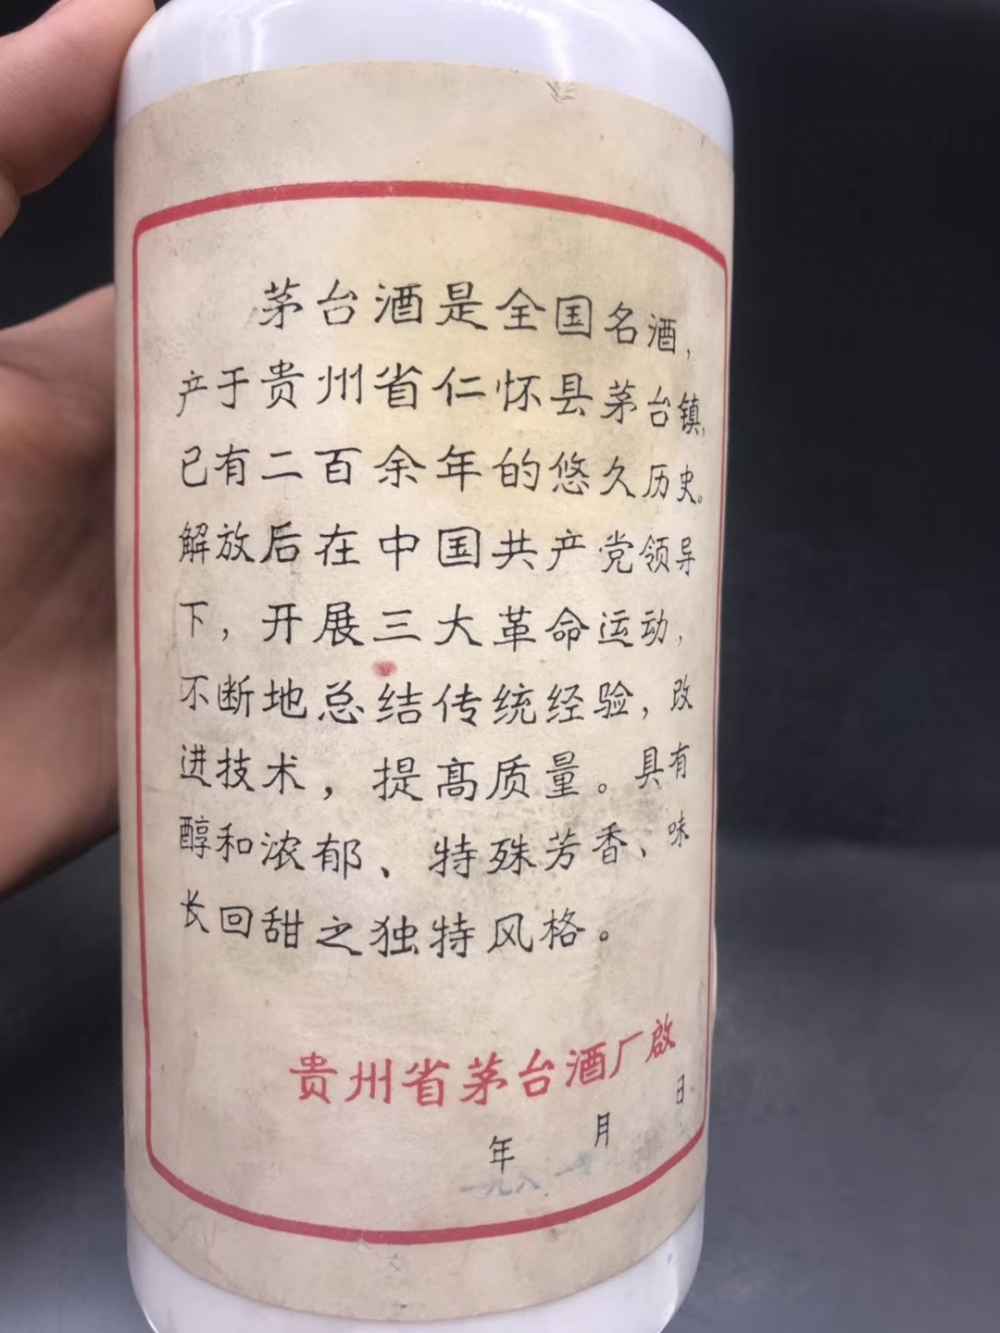 茅台酒是全国名酒，
产于贵州省仁怀县茅台镇，
已有二百余年的悠久历史。
解放后在中国共产党领导
下，开展三大革命运动，
不断地总结传统经验，改
进技术，提高质量。具有
醇和浓郁、特殊芳香、味
长回甜之独特风格。
贵州省茅台酒厂啟
年 月 日
一九八